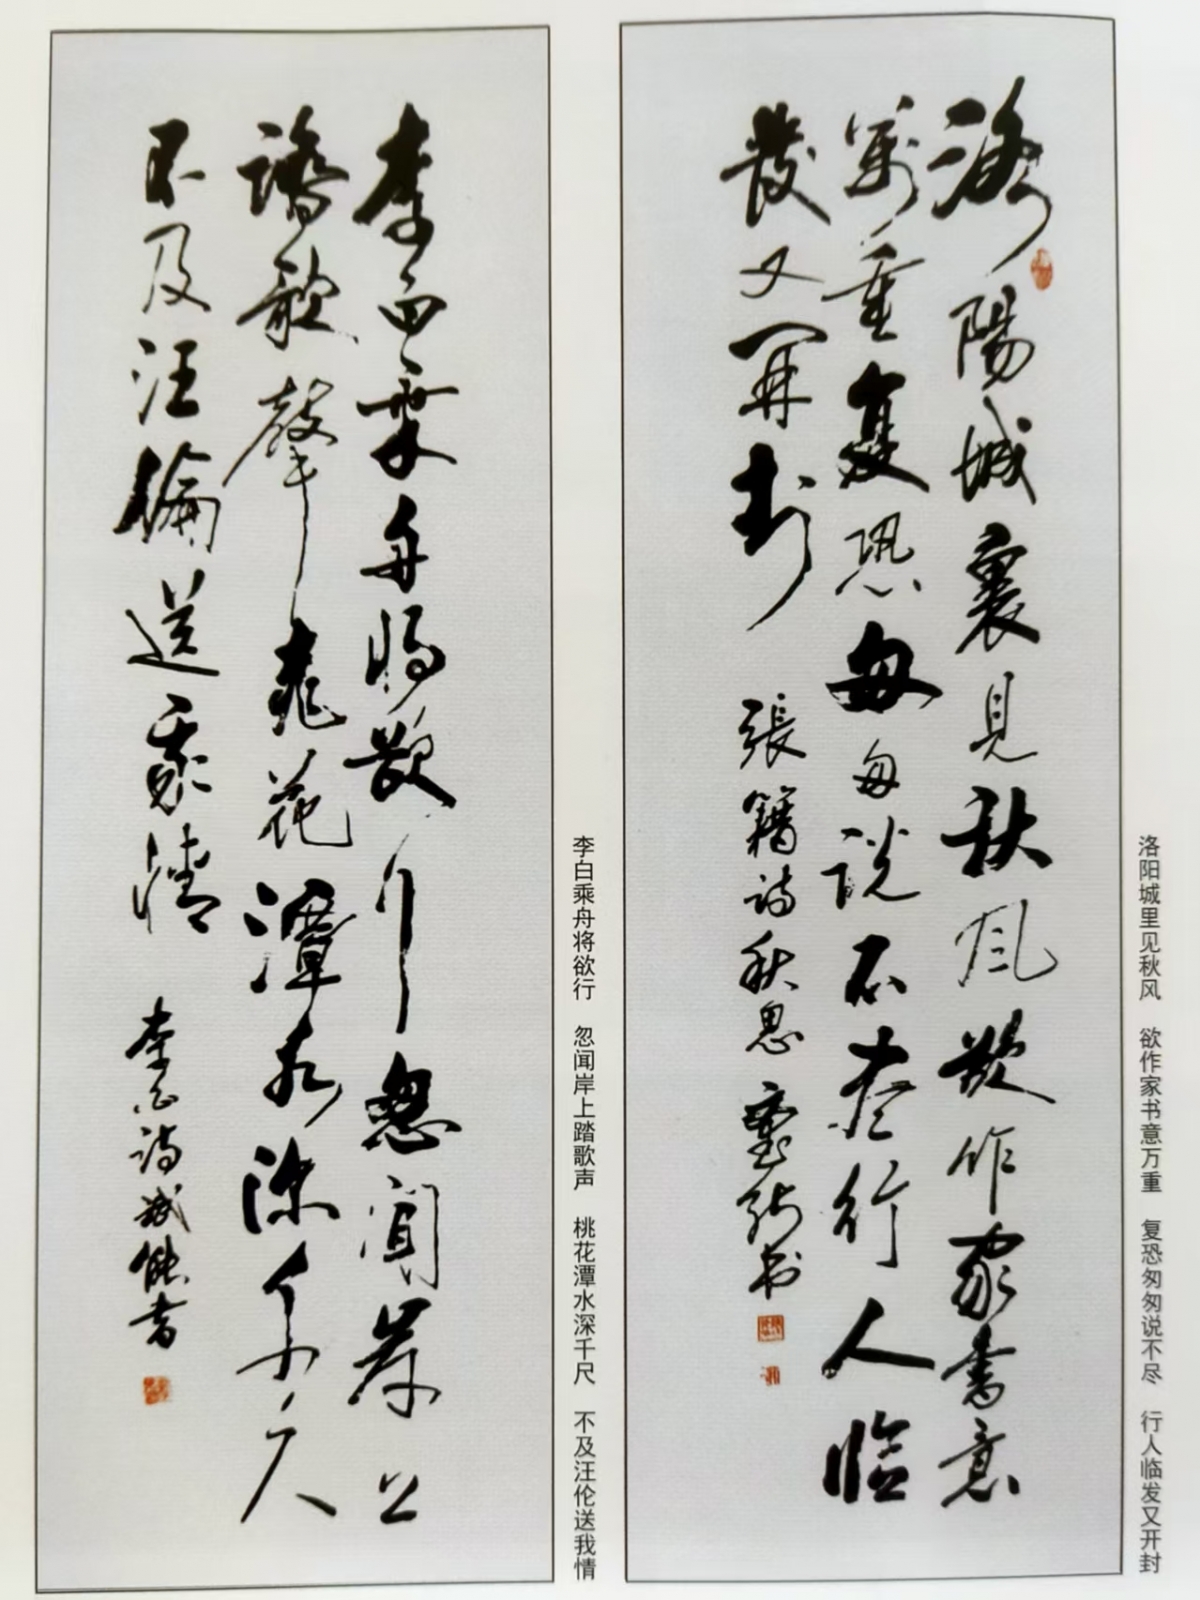 洛阳城里见秋风 欲作家书意万重 复恐匆匆说不尽 行人临发又开封
洛陽城裏見秋風欲作家書意
萬重復恐匆匆説不盡行人臨
發又開封 張籍詩秋思 书
李白乘舟将欲行 忽闻岸上踏歌声 桃花潭水深千尺 不及汪伦送我情
李白乘舟將欲行忽聞岸上
踏歌聲桃花潭水深千尺
不及汪倫送我情 李白詩